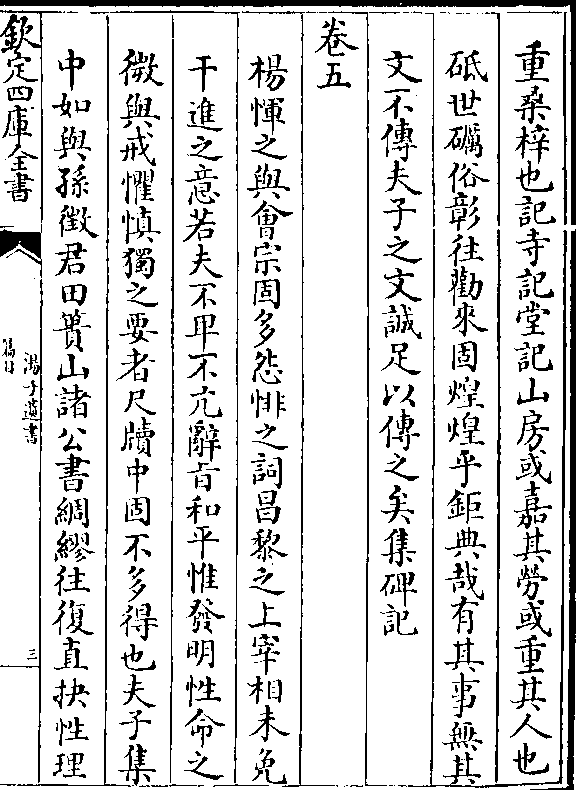 重桑梓也記寺記堂記山房或嘉其勞或重其人也
砥世礪俗彰往勸來固煌煌乎鉅典哉有其事無其
文不傳夫子之文誠足以傳之矣集碑記
卷五
楊惲之與會宗固多怨悱之詞昌黎之上宰相未免
干進之意若夫不卑不亢辭旨和平惟發明性命之
微與戒懼慎獨之要者尺牘中固不多得也夫子集
中如與孫徵君田簣山諸公書綢繆往復直抉性理
欽定四庫全書
湯子遺書
三